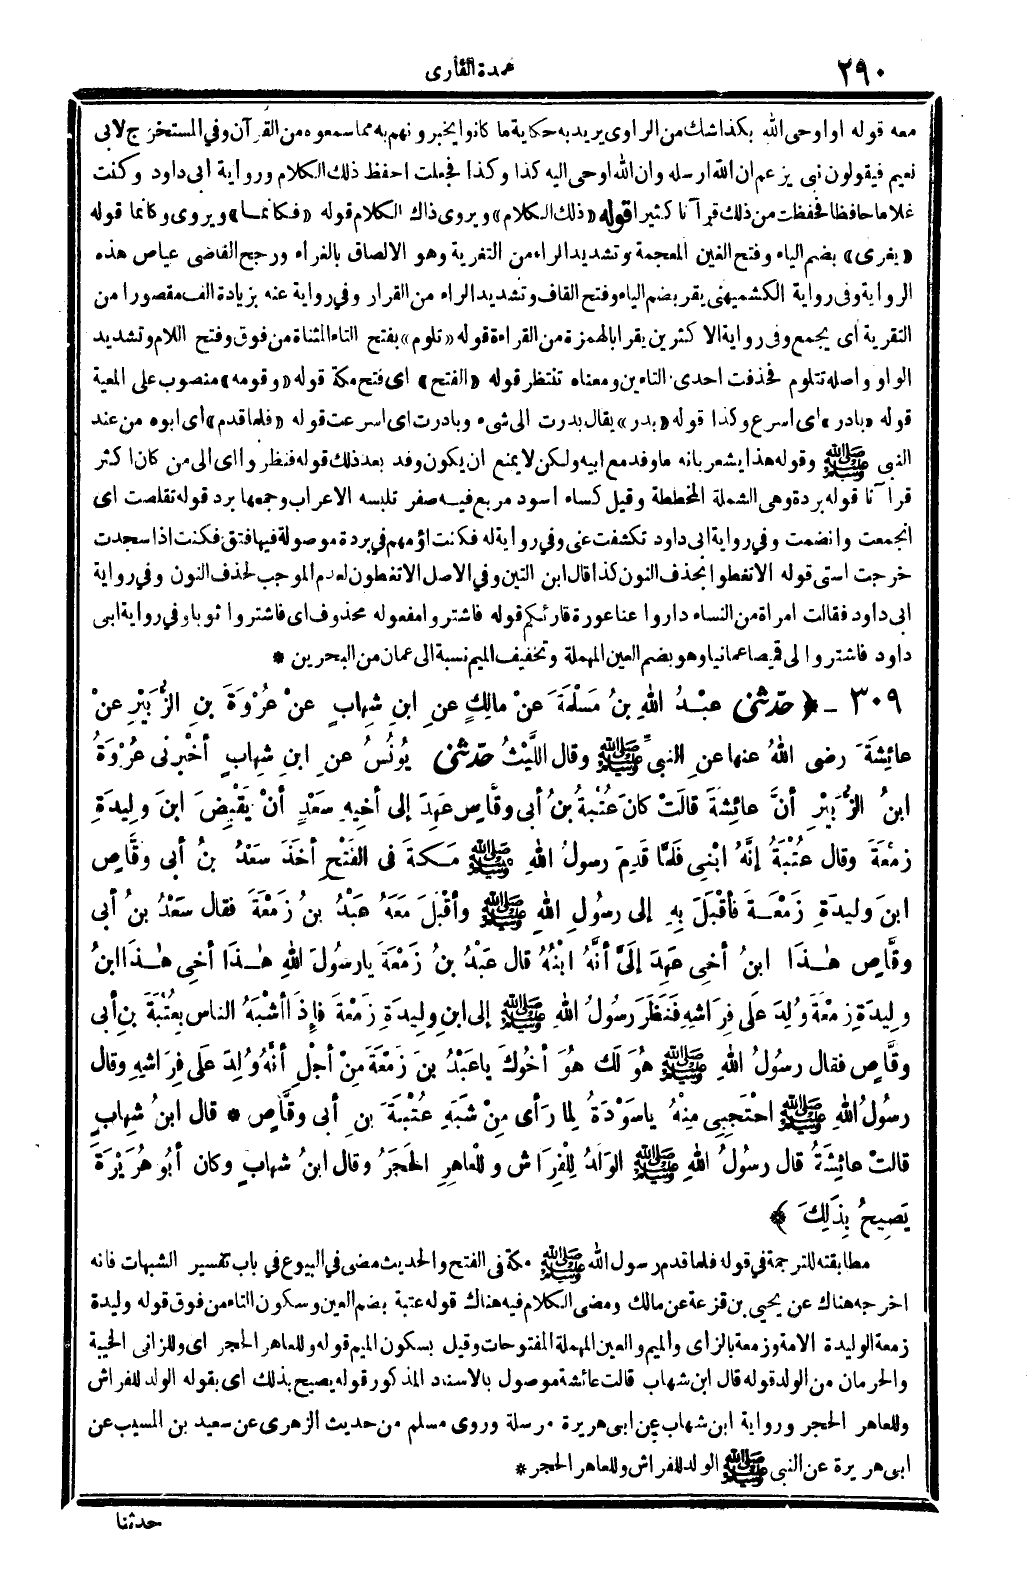 ٢٩٠
عمدة القارى
معه قوله او اوحى الله بكذا شك من الراوى يريد به حكاية ما كانوا يخبرونهم به مما سمعوه من القرآن وفي المستخرج لابى
نعيم فيقولون نبى يزعم ان الله ارسله وان الله اوحى اليه كذا وكذا فجعلت احفظ ذلك الكلام ورواية ابى داود وكنت
غلاما حافظا فحفظت من ذلك قرآنا كثيرا قوله «ذلك الكلام» ويروى ذاك الكلام قوله «فكانما» ويروى وكانما قوله
«يغرى» بضم الياء وفتح الغين المعجمة وتشديد الراء من التغرية وهو الالصاق بالغراء ورجح القاضى عياض هذه
الرواية وفى رواية الكشميهنى يقر بضم الياء وفتح القاف وتشديد الراء من القرار وفي رواية عنه بزيادة الف مقصورا من
التقرية أى يجمع وفى رواية الاكثرين يقرا بالهمزة من القراءة قوله «تلوم» بفتح التاء المثناة من فوق وفتح اللام وتشديد
الواو واصله تتلوم فحذفت احدى التاءين ومعناه تنتظر قوله «الفتح» اى فتح مكة قوله «وقومه» منصوب على المعية
قوله «بادر» اى اسرع وكذا قوله «بدر» يقال بدرت الى شىء وبادرت اى اسرعت قوله «فلما قدم» أى ابوه من عند
النبى ﷺ وقوله هذا يشعر بانه ما وفد مع ابيه ولكن لا يمنع ان يكون وفد بعد ذلك قوله فنظروا اى الى من كان اكثر
قرآنا قوله بردة وهى الشملة المخططة وقيل كساء اسود مربع فيه صفر تلبسه الاعراب وجمعها برد قوله تقلصت اى
انجمعت وانضمت وفي رواية ابى داود تكشفت عنى وفي رواية له فكنت اؤمهم في بردة موصولة فيها فتق فكنت اذا سجدت
خرجت استى قوله الا تغطوا بحذف النون كذا قال ابن التين وفي الاصل الا تغطون لعدم الموجب لحذف النون وفي رواية
ابى داود فقالت امراة من النساء داروا عنا عورة قارئكم قوله فاشتروا مفعوله محذوف اى فاشتروا ثوبا وفي رواية ابى
داود فاشتروا لى قميصا عمانيا وهو بضم العين المهملة وتخفيف الميم نسبة الى عمان من البحرين *
٣٠٩ - ﴿ حدّثنى عبْدُ اللهِ بنُ مَسْلَمَةَ عنْ مالِكٍ عنِ ابنِ شِهابٍ عنْ عُرْوَةَ بنِ الزُّبَيْرِ عنْ
عائِشَةَ رضى اللهُ عنها عنِ النبىِّ ﷺ وقال اللَّيْثُ حدّثنى يُونُسُ عنِ ابنِ شِهابٍ أخْبرنى عُرْوَةُ
ابنُ الزُّبَيْرِ أنَّ عائِشَةَ قالَتْ كانَ عُتْبَةُ بنُ أبى وقَّاصٍ عَهِدَ إلى أخِيهِ سَعْدٍ أنْ يَقْبِضَ ابنَ ولِيدَةِ
زمْعَةَ وقال عُتْبَةُ إنَّهُ ابْنِى فَلَمَّا قَدِمَ رسولُ اللهِ ﷺ مَكَّةَ فى الفَتْحِ أخَذَ سَعْدُ بنُ أبى وقَّاصٍ
ابنَ ولِيدَةِ زَمْعَةَ فأقْبَلَ بِهِ إلى رسُولِ اللهِ ﷺ وأقْبَلَ مَعَهُ عَبْدُ بنُ زمْعَةَ فقال سَعْدُ بنُ أبى
وقَّاصٍ هٰذَا ابنُ أخى عَهِدَ إلَىَّ أنَّهُ ابْنُهُ قال عَبْدُ بنُ زَمْعَةَ يارسُولَ اللهِ هٰذَا أخى هٰذَا ابنُ
ولِيدَةِ زمْعَةَ وُلِدَ عَلَى فِرَاشِهِ فَنَظَرَ رسُولُ اللهِ ﷺ إلى ابنِ ولِيدَةِ زمْعَةَ فإذَا أشْبَهُ الناسِ بِعُتْبَةَ بنِ أبى
وقَّاصٍ فقال رسولُ اللهِ ﷺ هُوَ لَكَ هُوَ أخُوكَ ياعَبْدُ بنَ زَمْعَةَ مِنْ أجْلِ أنَّهُ وُلِدَ عَلَى فِرَاشِهِ وقال
رسولُ اللهِ ﷺ احْتَجِبِى مِنْهُ ياسَوْدَةُ لِما رَأى مِنْ شَبَهِ عُتْبَةَ بنِ أبى وقَّاصٍ * قال ابنُ شِهابٍ
قالتْ عائِشَةُ قال رسولُ اللهِ ﷺ الوَلَدُ لِلْفِرَاشِ ولِلْعاهِرِ الحَجَرُ وقال ابنُ شِهابٍ وكان أبُو هُرَيْرَةَ
يَصِيحُ بِذَلِكَ ﴾
مطابقته للترجمة في قوله فلما قدم رسول الله ﷺ مكة فى الفتح والحديث مضى في البيوع في باب تفسير الشبهات فانه
اخرجه هناك عن يحيى بن قزعة عن مالك ومضى الكلام فيه هناك قوله عتبة بضم العين وسكون التاء من فوق قوله وليدة
زمعة الوليدة الامة وزمعة بالزاى والميم والعين المهملة المفتوحات وقيل بسكون الميم قوله وللعاهر الحجر اى وللزانى الخيبة
والحرمان من الولد قوله قال ابن شهاب قالت عائشة موصول بالاسناد المذكور قوله يصيح بذلك اى بقوله الولد للفراش
وللعاهر الحجر ورواية ابن شهاب عن ابى هريرة مرسلة وروى مسلم من حديث الزهرى عن سعيد بن المسيب عن
ابى هريرة عن النبى ﷺ الولد للفراش وللعاهر الحجر *
حدثنا